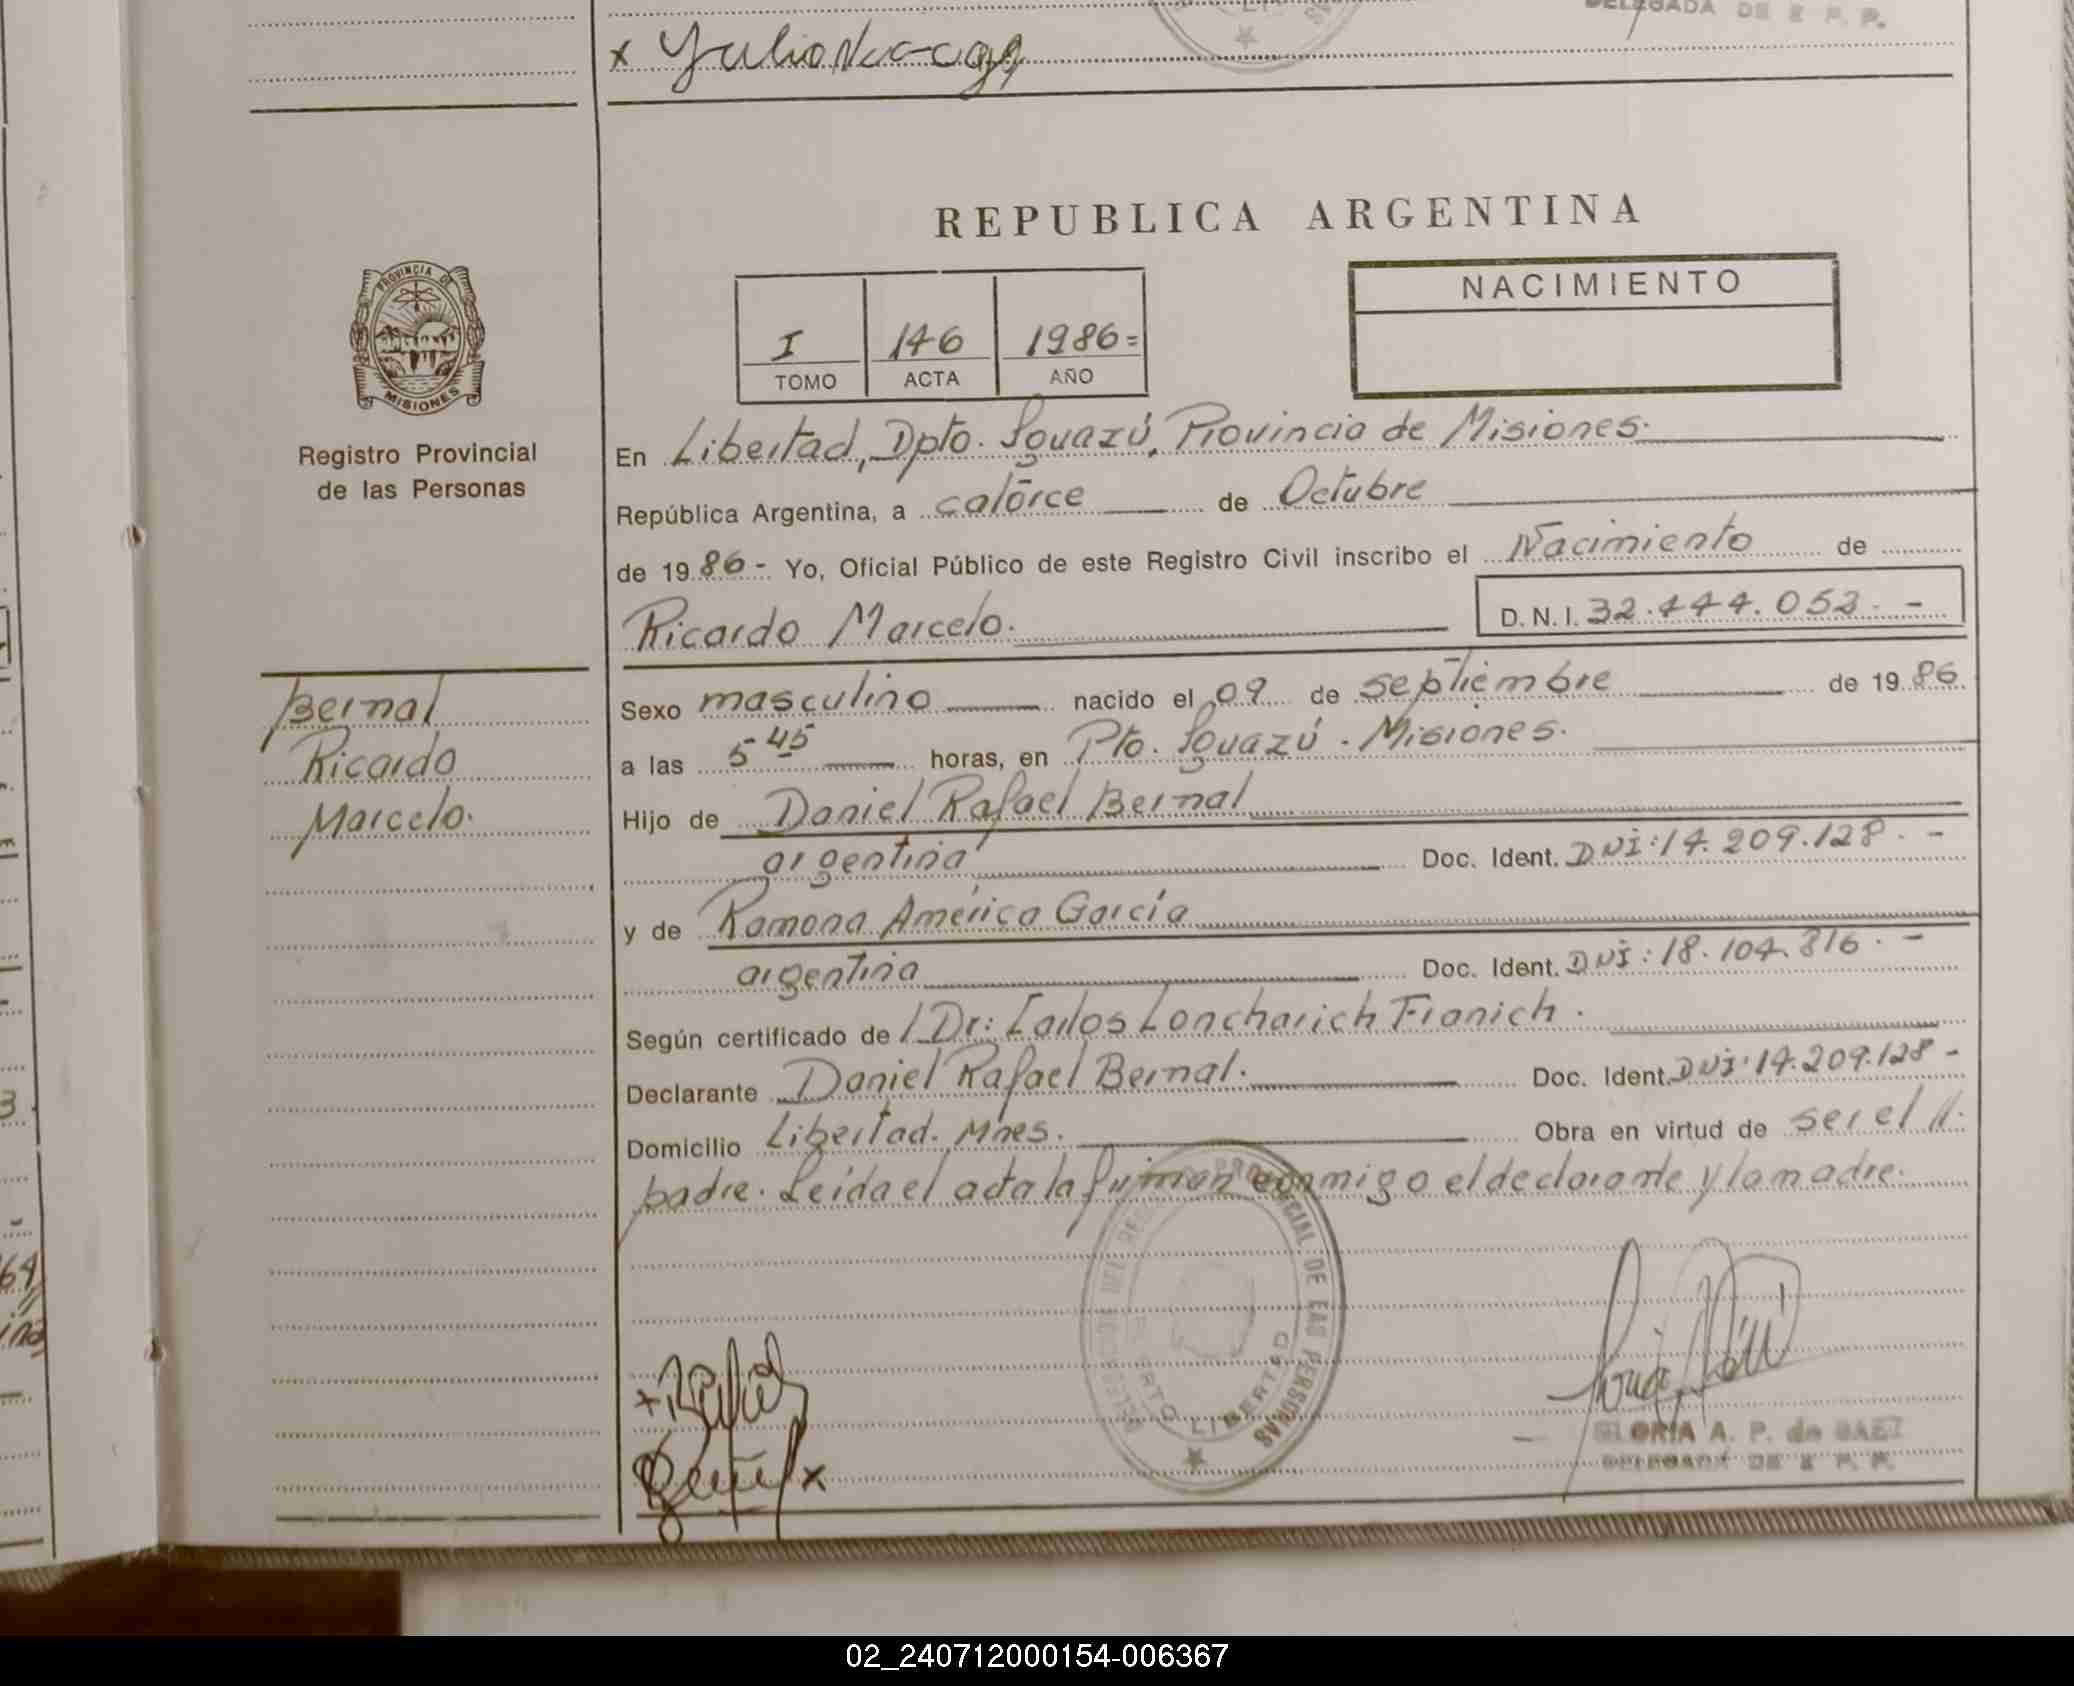 DELEGADA DE R P. P.
x Julio
REPUBLICA ARGENTINA
PROVINCIA DE
MISIONES
Registro Provincial
de las Personas
NACIMIENTO
I 146 1986=
TOMO ACTA AÑO
En Libertad, Dpto. Iguazú, Provincia de Misiones.
República Argentina, a catorce de Octubre
de 1986- Yo, Oficial Público de este Registro Civil inscribo el Nacimiento de
Ricardo Marcelo. D. N. I. 32.444.053.-
Bernal
Ricardo
Marcelo.
Sexo masculino nacido el 09 de septiembre de 1986.
a las 5 45 horas, en Pto. Iguazú - Misiones.
Hijo de Daniel Rafael Bernal
argentina Doc. Ident. DNI: 14.209.128.-
y de Ramona América García
argentina Doc. Ident. DNI: 18.104.816.-
Según certificado de Dr: Carlos Loncharich Franich.
Declarante Daniel Rafael Bernal. Doc. Ident. DNI: 14.209.128-
Domicilio Libertad. Mnes. Obra en virtud de ser el //.
padre. Leida el acta la firman conmigo el declarante y la madre.
PROVINCIAL DE LAS PERSONAS
PTO LIBERTAD
GLORIA A. P. de BAEZ
DELEGADA DE R P. P.
02_240712000154-006367